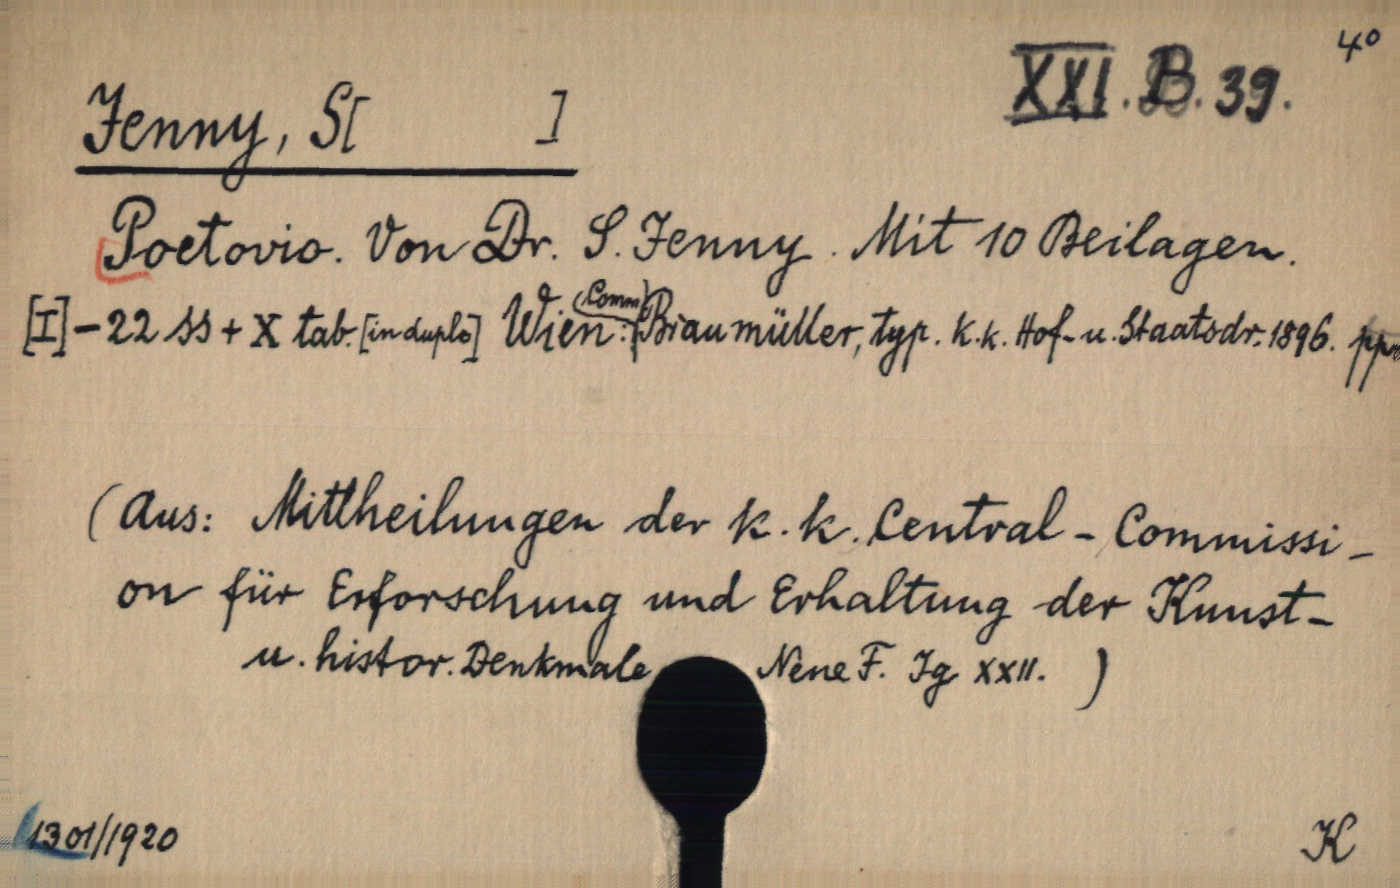 4°
XXI. B. 39.
Jenny, S[ ]
Poetovio. Von Dr. S. Jenny. Mit 10 Beilagen.
[I]-22 SS + X tab. [in duplo] Wien: (Comm) Braumüller, typ. k. k. Hof- u. Staatsdr. 1896. pp
(Aus: Mittheilungen der k. k. Central-Commissi-
on für Erforschung und Erhaltung der Kunst-
u. histor. Denkmale Neue F. Jg XXII. )
1301/1920
K